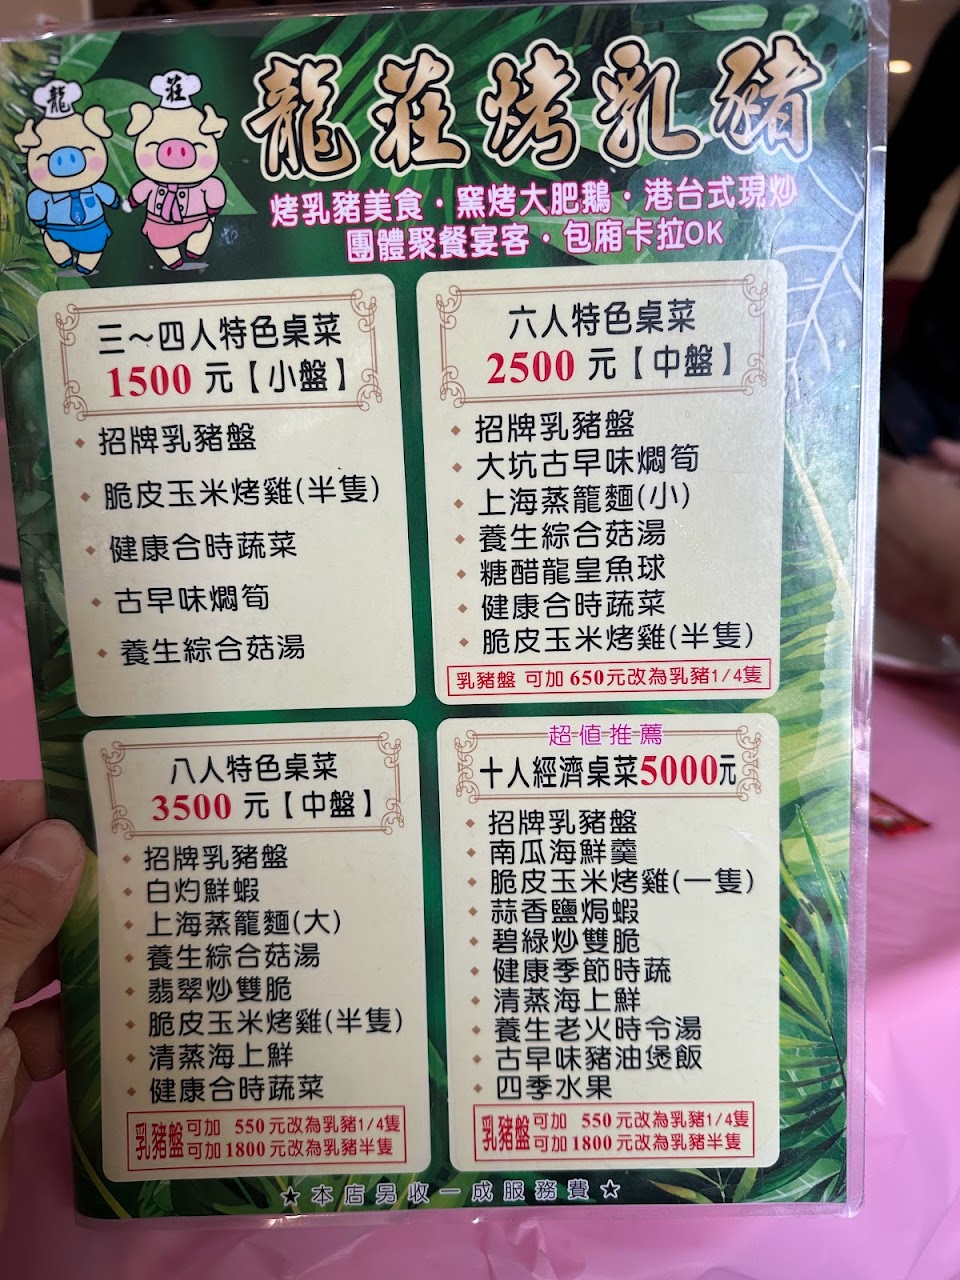 龍 莊
龍莊烤乳豬
烤乳豬美食・窯烤大肥鵝・港台式現炒
團體聚餐宴客・包廂卡拉OK
三～四人特色桌菜
1500 元【小盤】
招牌乳豬盤
脆皮玉米烤雞(半隻)
健康合時蔬菜
古早味燜筍
養生綜合菇湯
六人特色桌菜
2500 元【中盤】
招牌乳豬盤
大坑古早味燜筍
上海蒸籠麵(小)
養生綜合菇湯
糖醋龍皇魚球
健康合時蔬菜
脆皮玉米烤雞(半隻)
乳豬盤 可加 650元改為乳豬1/4隻
八人特色桌菜
3500 元【中盤】
招牌乳豬盤
白灼鮮蝦
上海蒸籠麵(大)
養生綜合菇湯
翡翠炒雙脆
脆皮玉米烤雞(半隻)
清蒸海上鮮
健康合時蔬菜
乳豬盤 可加 550元改為乳豬1/4隻
可加1800元改為乳豬半隻
超值推薦
十人經濟桌菜5000元
招牌乳豬盤
南瓜海鮮羹
脆皮玉米烤雞(一隻)
蒜香鹽焗蝦
碧綠炒雙脆
健康季節時蔬
清蒸海上鮮
養生老火時令湯
古早味豬油煲飯
四季水果
乳豬盤 可加 550元改為乳豬1/4隻
可加1800元改為乳豬半隻
★本店另收一成服務費★